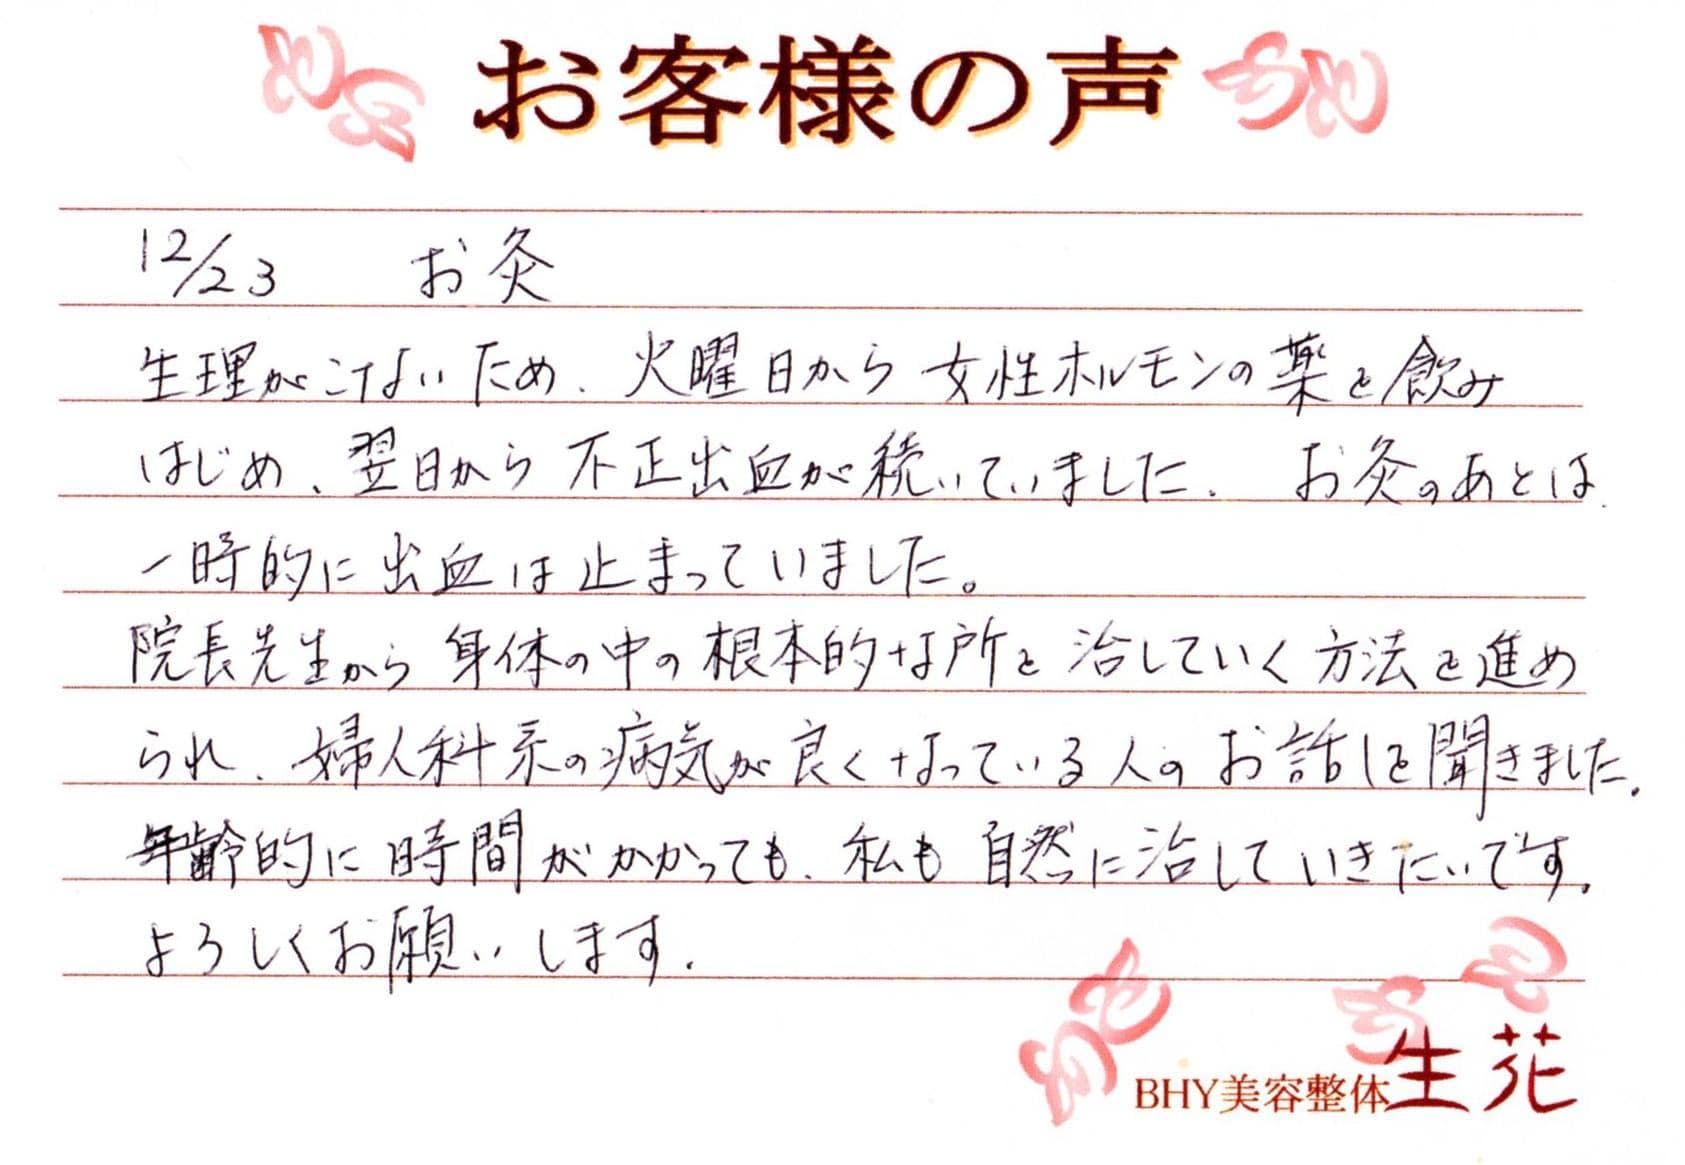 お客様の声
12/23 お灸
生理がこないため、火曜日から女性ホルモンの薬を飲み
はじめ、翌日から不正出血が続いていました。お灸のあとは
一時的に出血は止まっていました。
院長先生から身体の中の根本的な所を治していく方法を進め
られ、婦人科系の病気が良くなっている人のお話しを聞きました。
年齢的に時間がかかっても、私も自然に治していきたいです。
よろしくお願いします。
BHY美容整体生花